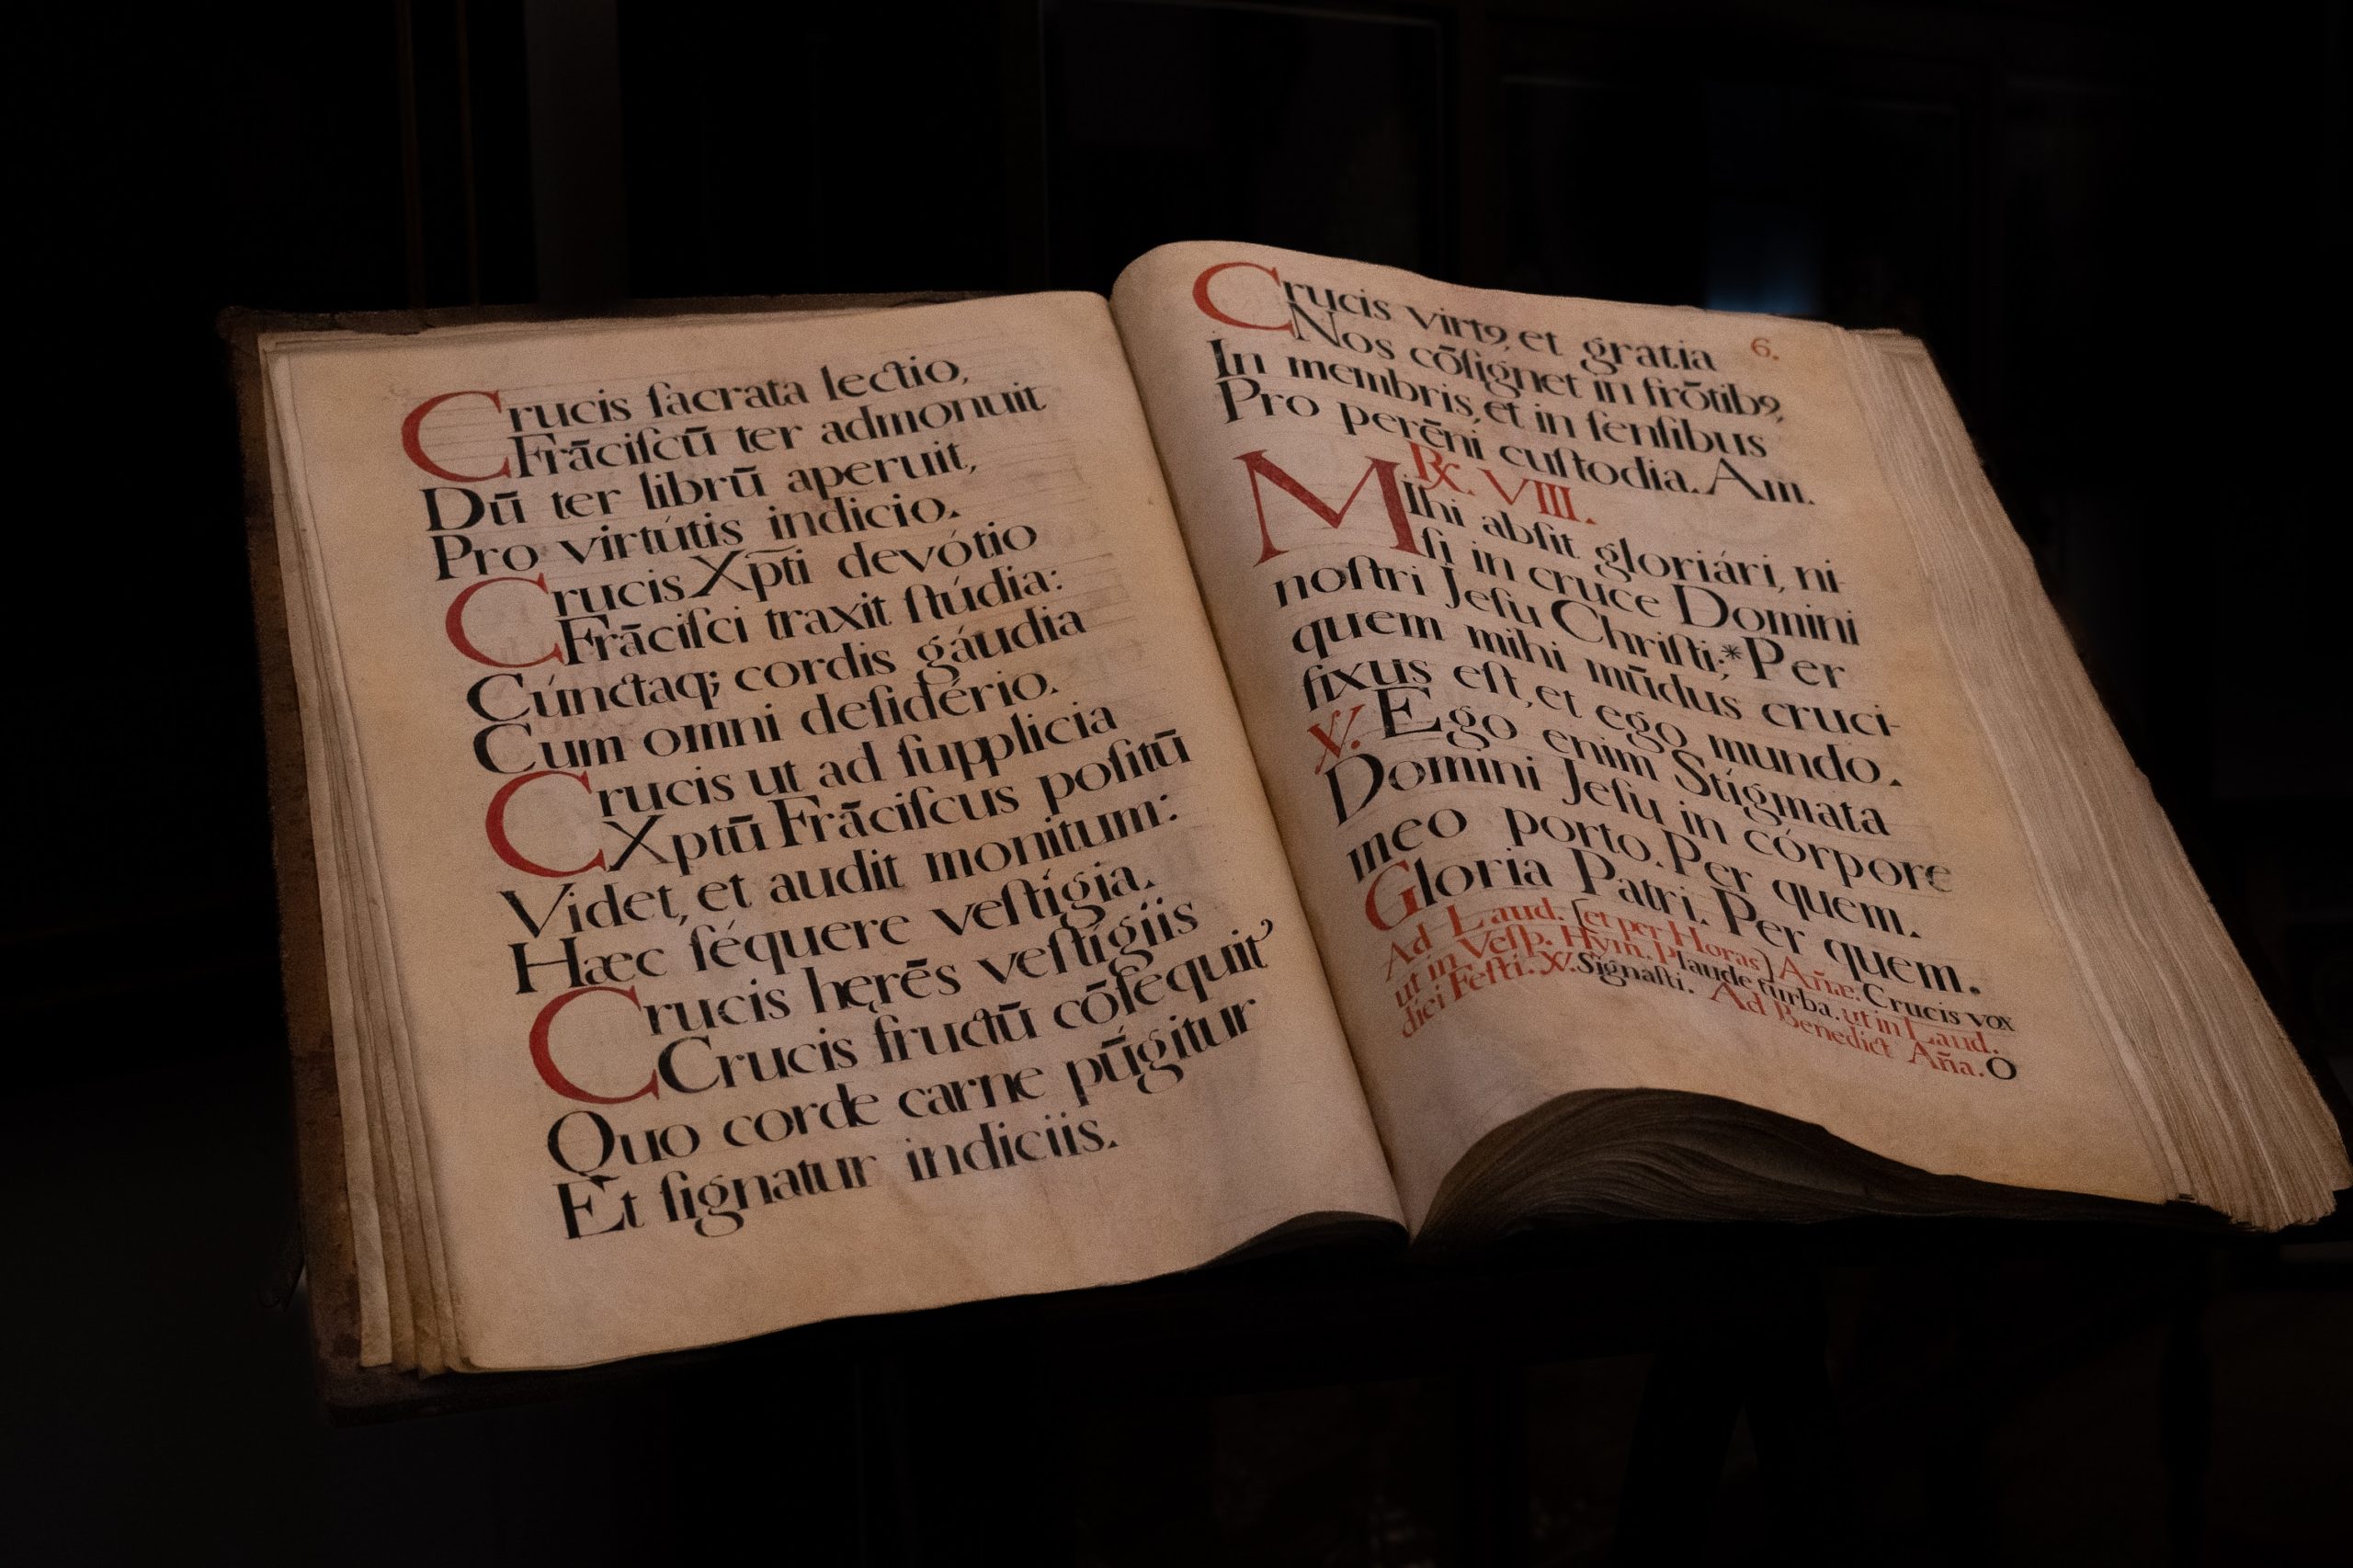 Crucis ſacrata lectio,
Frāciſcū ter admonuit
Dū ter librū aperuit,
Pro virtútis indicio.
Crucis Xp̄ti devótio
Frāciſci traxit ſtúdia:
Cúnctaq; cordis gáudia
Cum omni deſidério.
Crucis ut ad ſupplicia
Xptū Frāciſcus poſitū
Videt, et audit monitum:
Hæc ſéquere veſtígia.
Crucis hęrēs veſtígiis
Crucis fructū cōſequit᾿
Quo corde carne pūgitur
Et ſignatur indiciis.
6.
Crucis virtꝰ, et gratia
Nos cōſignet in frōtibꝰ,
In membris, et in ſenſibus
Pro perēni cuſtodia. Am.
℞. VIII.
Mihi abſit gloriári, ni-
ſi in cruce Domini
noſtri Jeſu Chriſti; * Per
quem mihi mūdus cruci-
fixus eſt, et ego mundo.
℣. Ego enim Stigmata
Domini Jeſu in córpore
meo porto. Per quem.
Gloria Patri. Per quem.
Ad Laud. (et per Horas) Añæ. Crucis vox
ut in Veſp. Hym. Plaude turba. ut in Laud.
diei Feſti. ℣. Signaſti. Ad Benedict Aña. O